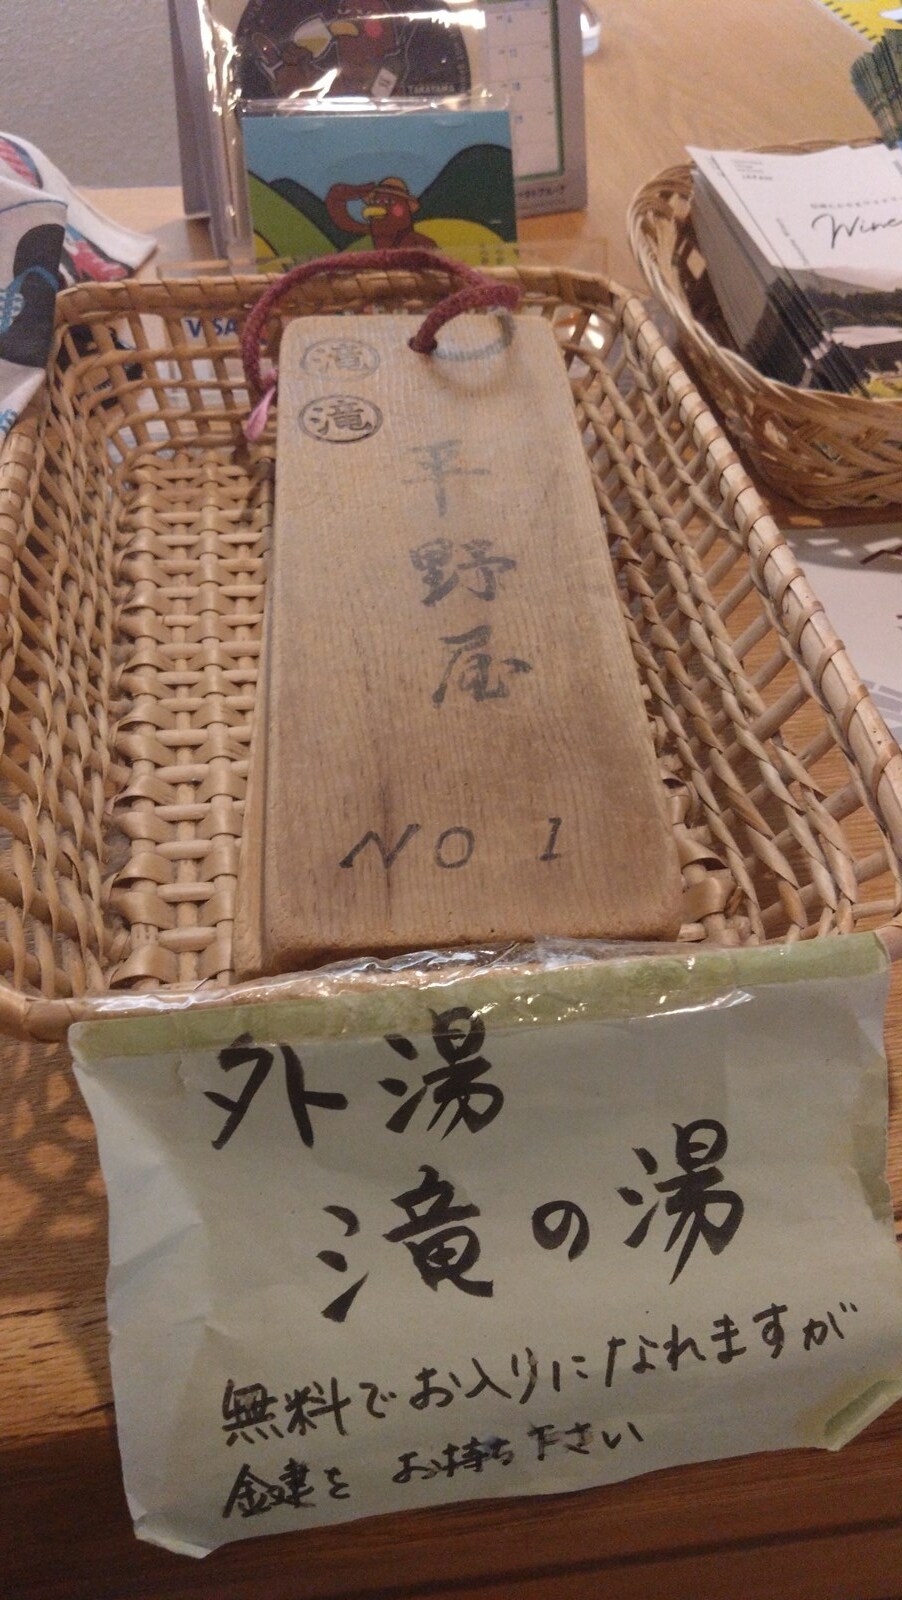 TAKAYAMA
VISA
Wine
滝
滝
平野屋
NO 1
外湯
滝の湯
無料でお入りになれますが
鍵をお持ち下さい